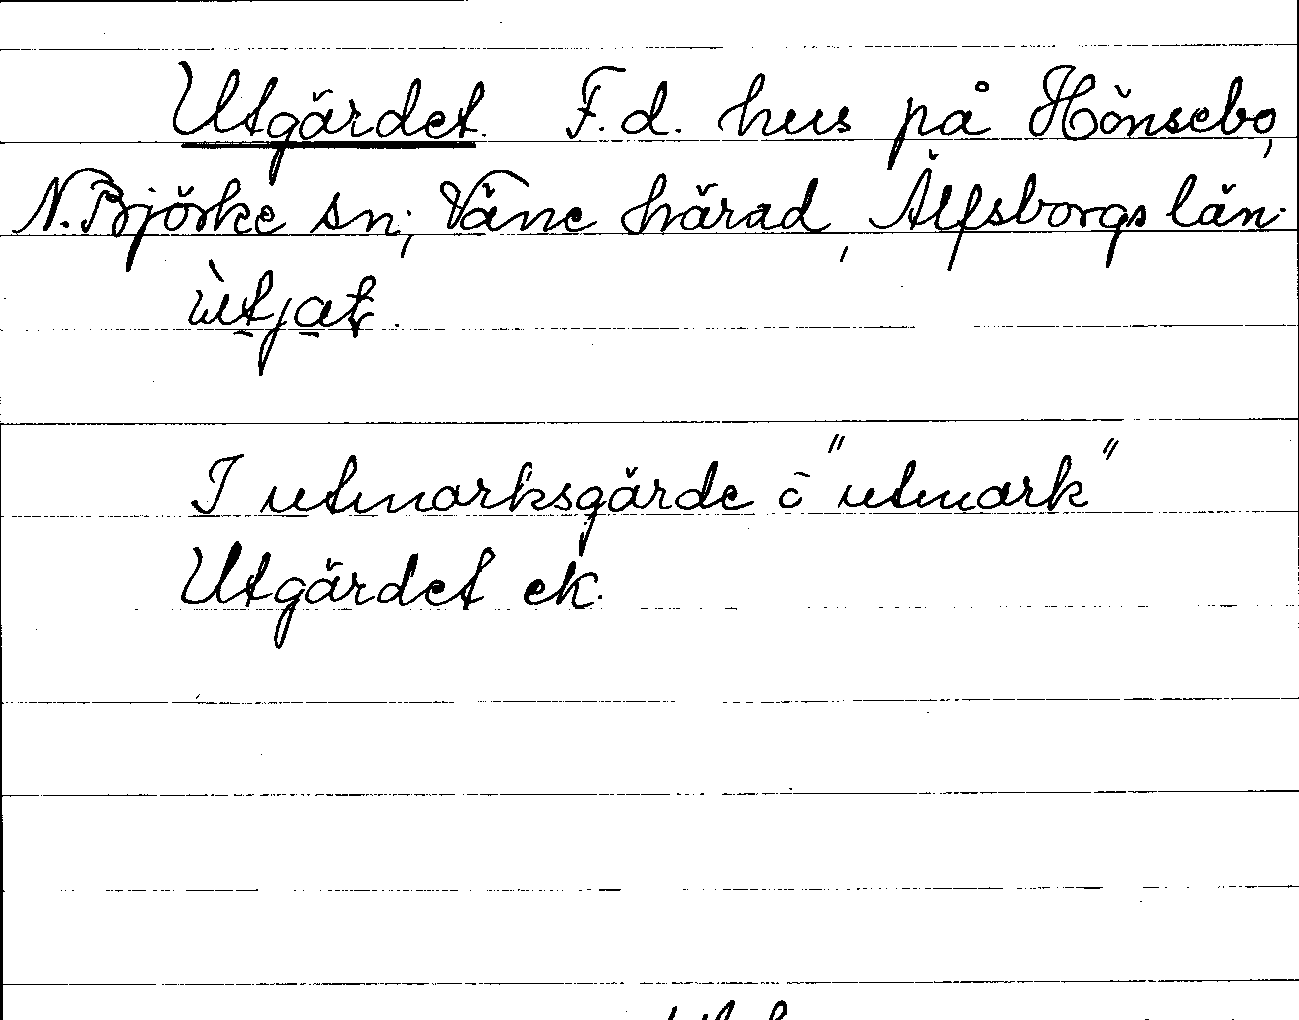 Utgärdet. F.d. hus på Hönsebo,
N. Björke sn, Väne härad, Älfsborgs län.
ùtjat.
I utmarksgärde ō "utmark"
Utgärdet ek.